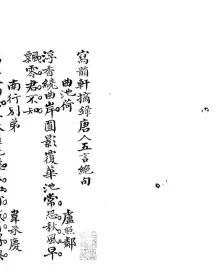 寫韻軒摘錄唐人五言絕句
曲池荷
盧照鄰
浮香繞曲岸圓影覆華池常恐秋風早
飄零君不知
南行別弟
韋承慶